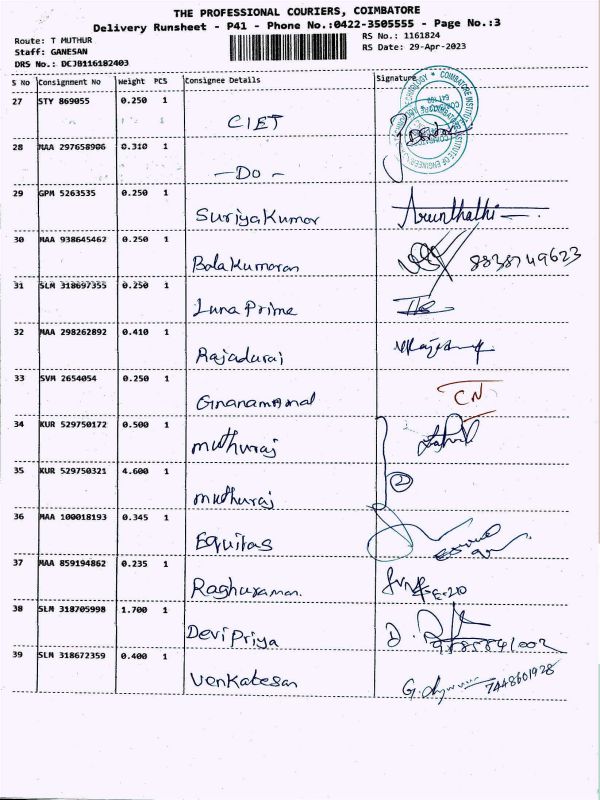 THE PROFESSIONAL COURIERS, COIMBATORE
Delivery Runsheet - P41 - Phone No.:0422-3505555 - Page No.:3
Route: T MUTHUR RS No.: 1161824
Staff: GANESAN RS Date: 29-Apr-2023
DRS No.: DCJB116182403
S No Consignment No Weight PCS Consignee Details Signature
27 STY 869055 0.250 1 CIET
28 MAA 297658906 0.310 1 - Do -
29 GPM 5263535 0.250 1 Suriya Kumar Arunthathi
30 MAA 938645462 0.250 1 Bala Kumaran
31 SLM 318697355 0.250 1 Luna Prime
32 MAA 298262892 0.410 1 Rajadurai
33 SVM 2654054 0.250 1 Gnanammal CN
34 KUR 529750172 0.500 1 muthuraj
35 KUR 529750321 4.600 1 muthuraj 2
36 MAA 100018193 0.345 1 Equitas
37 MAA 859194862 0.235 1 Raghuraman
38 SLM 318705998 1.700 1 Devi Priya D.
39 SLM 318672359 0.400 1 Venkatesan G. 7448601928